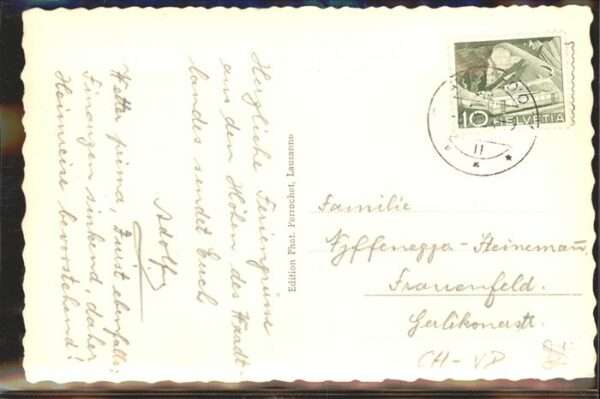 Herzliche Feriengrüsse
aus den Höhen des Waadt-
landes sendet Euch
Adolf
Wetter prima, Durst ebenfalls;
Finanzen sinkend, daher
Heimreise bevorstehend!
Edition Phot. Perrochet, Lausanne
10 HELVETIA
Familie
Nyffenegger-Steinemann,
Frauenfeld.
Gerlikonerstr.
CH-VD